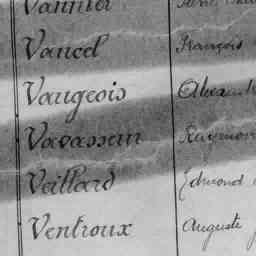 Vannier
Vancel François
Vaugeois
Vavasseur Raymon
Veillard Edmond
Ventroux Auguste